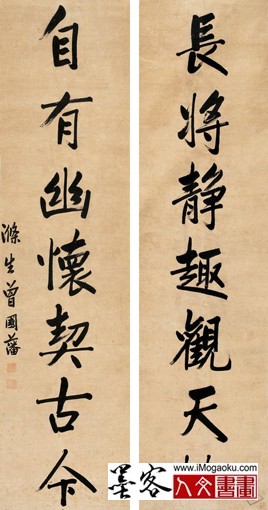 長將静趣觀天
自有幽懷契古今
滌生曾國藩
www.iMogaoku.com
墨客
人文書畫